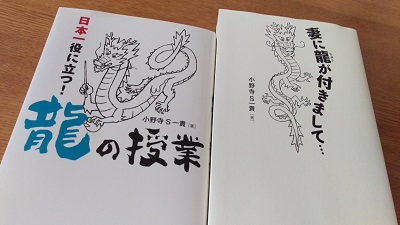 日本一役に立つ！
龍の授業
小野寺S一貴[著]
妻に龍が付きまして…
小野寺S一貴[著]